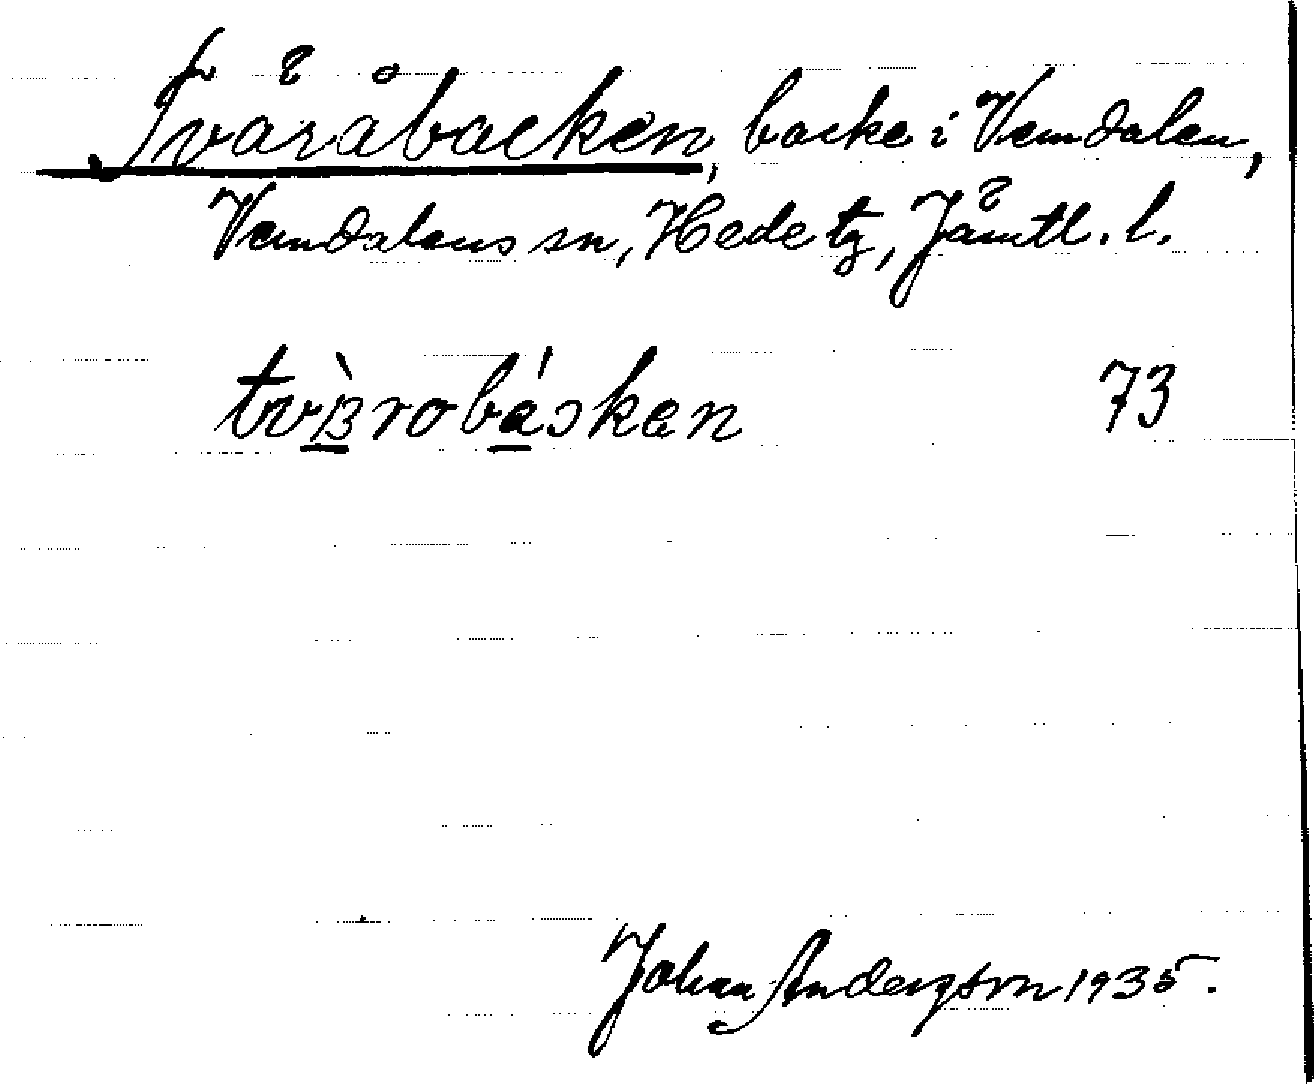 Tväråbacken, backe i Vemdalen,
Vemdalens sn, Hede tg, Jämtl. l.
73
Johan Anderson 1935.